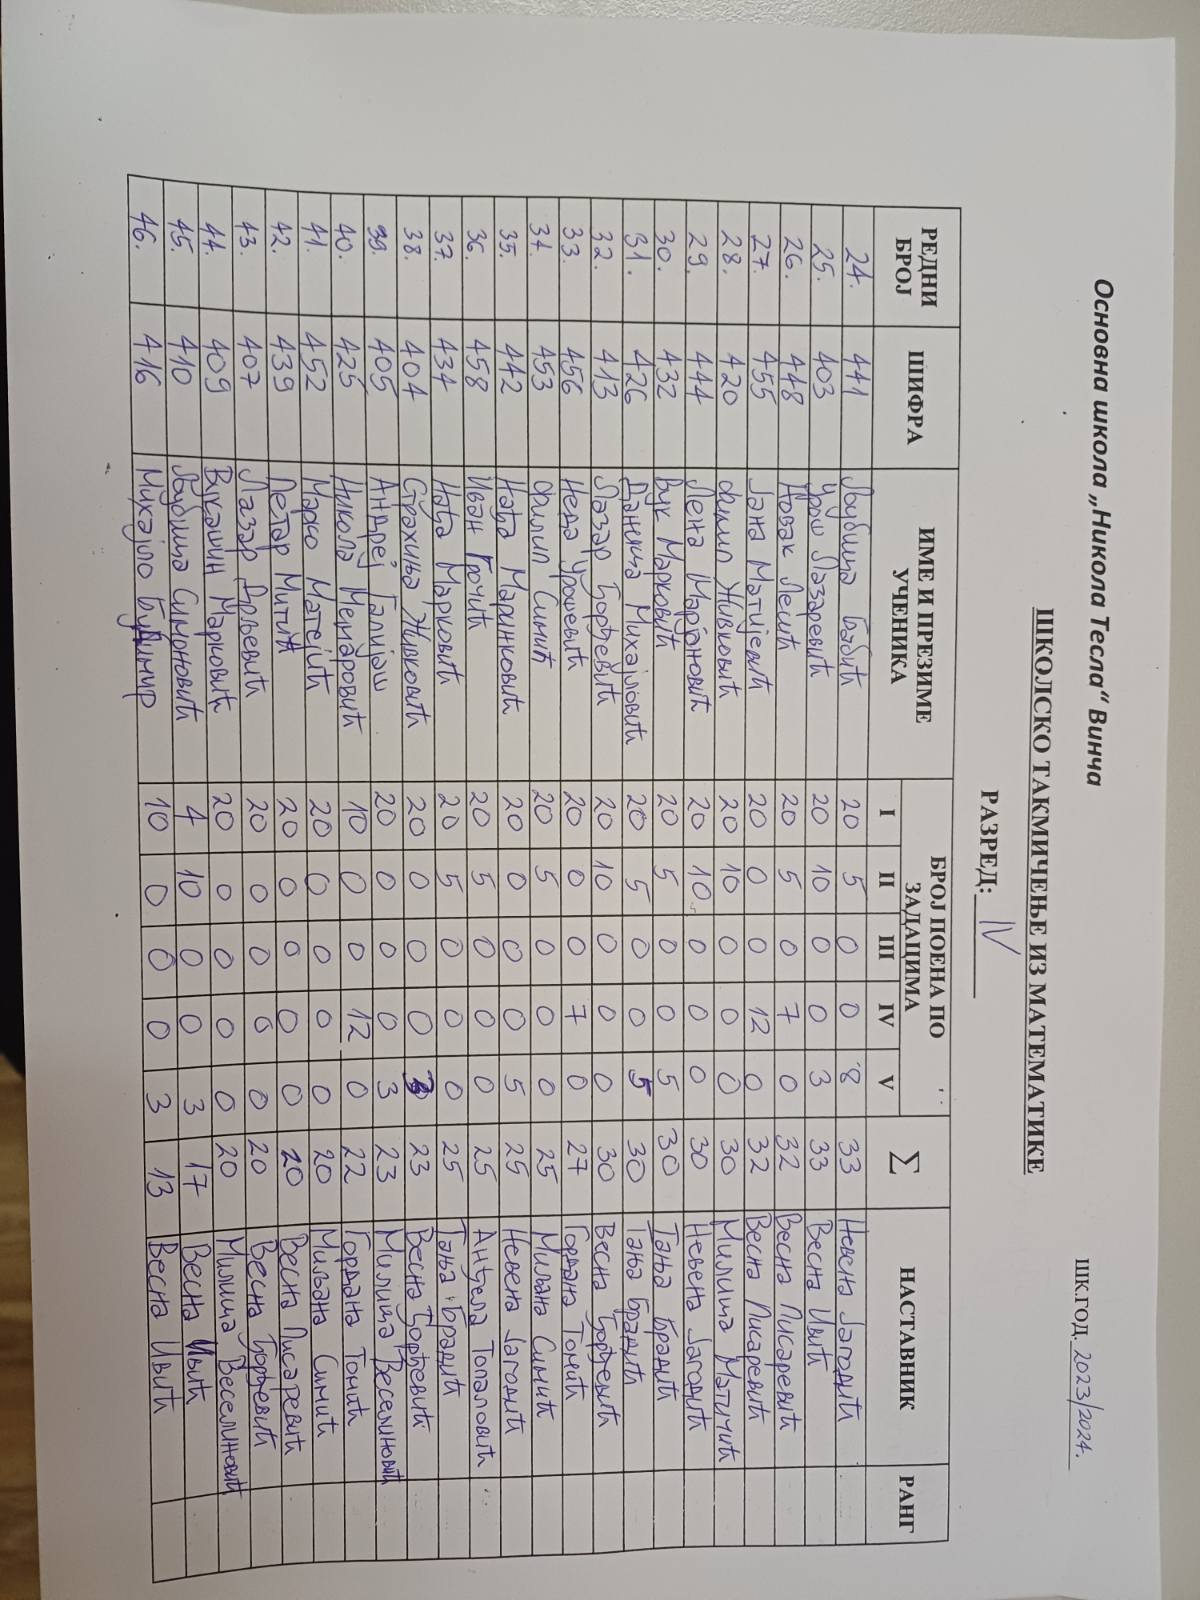 Основна школа „Никола Тесла“ Винча
ШК.ГОД. 2023/2024.
ШКОЛСКО ТАКМИЧЕЊЕ ИЗ МАТЕМАТИКЕ
РАЗРЕД: IV
РЕДНИ БРОЈ ШИФРА ИМЕ И ПРЕЗИМЕ УЧЕНИКА БРОЈ ПОЕНА ПО ЗАДАЦИМА I II III IV V Σ НАСТАВНИК РАНГ
24. 441 Љубица Бабић 20 5 0 0 8 33 Невена Јагодић
25. 403 Урош Лазаревић 20 10 0 0 3 33 Весна Ивић
26. 448 Новак Лесић 20 5 0 7 0 32 Весна Писаревић
27. 455 Јана Матијевић 20 0 0 12 0 32 Весна Писаревић
28. 420 Филип Живковић 20 10 0 0 0 30 Милица Матичић
29. 444 Лена Марјановић 20 10 0 0 0 30 Невена Јагодић
30. 432 Вук Марковић 20 5 0 0 5 30 Тања Брадић
31. 426 Даница Михајловић 20 5 0 0 5 30 Тања Брадић
32. 413 Лазар Ђорђевић 20 10 0 0 0 30 Весна Ђорђевић
33. 456 Неда Урошевић 20 0 0 7 0 27 Гордана Томић
34. 453 Филип Симић 20 5 0 0 0 25 Миљана Симић
35. 442 Нађа Маринковић 20 0 0 0 5 25 Невена Јагодић
36. 458 Иван Грочић 20 5 0 0 0 25 Анђела Топаловић
37. 434 Нађа Марковић 20 5 0 0 0 25 Тања Брадић
38. 404 Страхиња Живковић 20 0 0 0 3 23 Весна Ђорђевић
39. 405 Андреј Галијаш 20 0 0 0 3 23 Милица Веселиновић
40. 425 Никола 10 0 0 12 0 22 Гордана Томић
41. 452 Марко Матејић 20 0 0 0 0 20 Миљана Симић
42. 439 Петар Митић 20 0 0 0 0 20 Весна Писаревић
43. 407 Лазар 20 0 0 0 0 20 Весна Ђорђевић
44. 409 Вукашин Марковић 20 0 0 0 0 20 Милица Веселиновић
45. 410 Љубица Симоновић 4 10 0 0 3 17 Весна Ивић
46. 416 Михајло Будимир 10 0 0 0 3 13 Весна Ивић